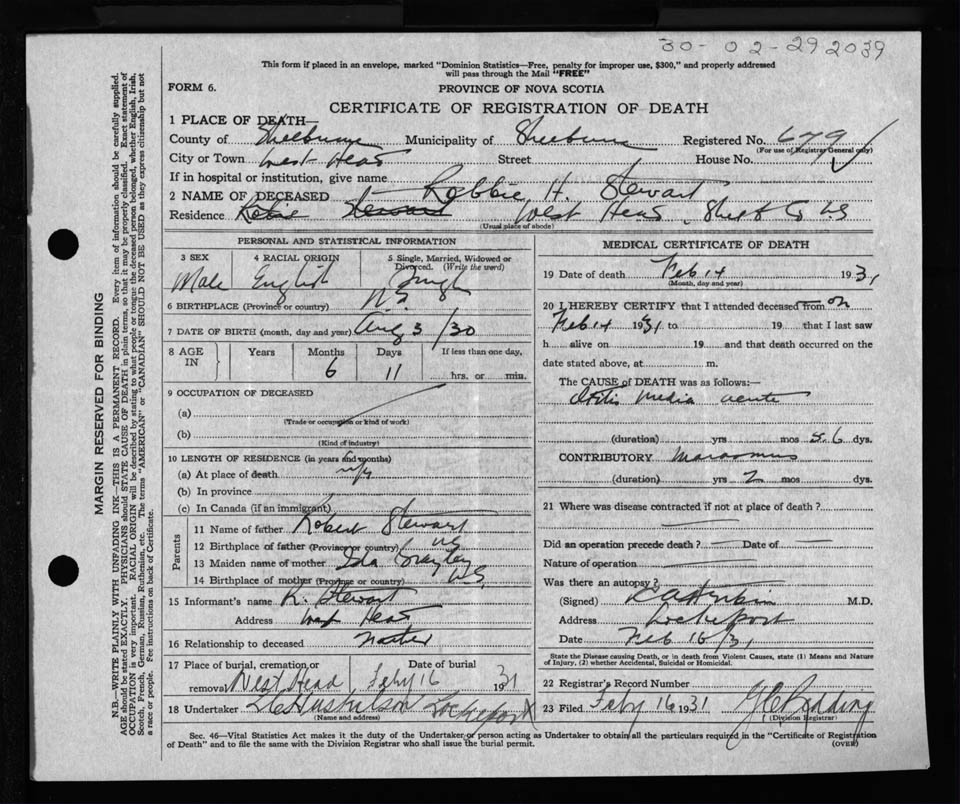 30-02-292039
This form if placed in an envelope, marked "Dominion Statistics—Free, penalty for improper use, $300," and properly addressed
will pass through the Mail "FREE"
FORM 6.
PROVINCE OF NOVA SCOTIA
CERTIFICATE OF REGISTRATION OF DEATH
1 PLACE OF DEATH—
County of Shelburne Municipality of Shelburne Registered No. 679
(For use of Registrar General only)
City or Town West Head Street House No.
If in hospital or institution, give name
2 NAME OF DECEASED Robbie H. Stewart
Residence West Head, Shelb Co NS
(Usual place of abode)
PERSONAL AND STATISTICAL INFORMATION
3 SEX 4 RACIAL ORIGIN 5 Single, Married, Widowed or Divorced. (Write the word)
Male English Single
6 BIRTHPLACE (Province or country) N.S.
7 DATE OF BIRTH (month, day and year) Aug 3/30
8 AGE IN Years Months Days If less than one day,
6 11 hrs. or min.
9 OCCUPATION OF DECEASED
(a)
(Trade or occupation or kind of work)
(b)
(Kind of industry)
10 LENGTH OF RESIDENCE (in years and months)
(a) At place of death
(b) In province
(c) In Canada (if an immigrant)
Parents
11 Name of father Robert Stewart
12 Birthplace of father (Province or country) NS
13 Maiden name of mother Ida
14 Birthplace of mother (Province or country) NS
15 Informant's name R. Stewart
Address West Head
16 Relationship to deceased
17 Place of burial, cremation, or removal West Head Date of burial Feby 16 1931
18 Undertaker Lockeport
(Name and address)
MEDICAL CERTIFICATE OF DEATH
19 Date of death Feb 14 1931
(Month, day and year)
20 I HEREBY CERTIFY that I attended deceased from on
Feb 14 1931 to 19 that I last saw
h alive on 19 and that death occurred on the
date stated above, at m.
The CAUSE OF DEATH was as follows:—
Otitis Media acute
(duration) yrs mos 5-6 dys.
CONTRIBUTORY Marasmus
(duration) yrs 2 mos dys.
21 Where was disease contracted if not at place of death?
Did an operation precede death? Date of
Nature of operation
Was there an autopsy?
(Signed) M.D.
Address Lockeport
Date Feb 16/31
State the Disease causing Death, or in death from Violent Causes, state (1) Means and Nature
of Injury, (2) whether Accidental, Suicidal or Homicidal.
22 Registrar's Record Number
23 Filed Feby 16 1931
(Division Registrar)
Sec. 46—Vital Statistics Act makes it the duty of the Undertaker or person acting as Undertaker to obtain all the particulars required in the "Certificate of Registration
of Death" and to file the same with the Division Registrar who shall issue the burial permit.
(OVER)
MARGIN RESERVED FOR BINDING
N.B.—WRITE PLAINLY WITH UNFADING INK—THIS IS A PERMANENT RECORD. Every item of information should be carefully supplied.
AGE should be stated EXACTLY. PHYSICIANS should STATE CAUSE OF DEATH in plain terms, so that it may be properly classified. Exact statement of
OCCUPATION is very important. RACIAL ORIGIN will be described by stating to what people or tongue the deceased person belonged, whether English, Irish,
Scotch, French, German, Russian, Ruthenian, etc. The terms "AMERICAN" or "CANADIAN" SHOULD NOT BE USED as they express citizenship but not
a race or people. Fee instructions on back of Certificate.